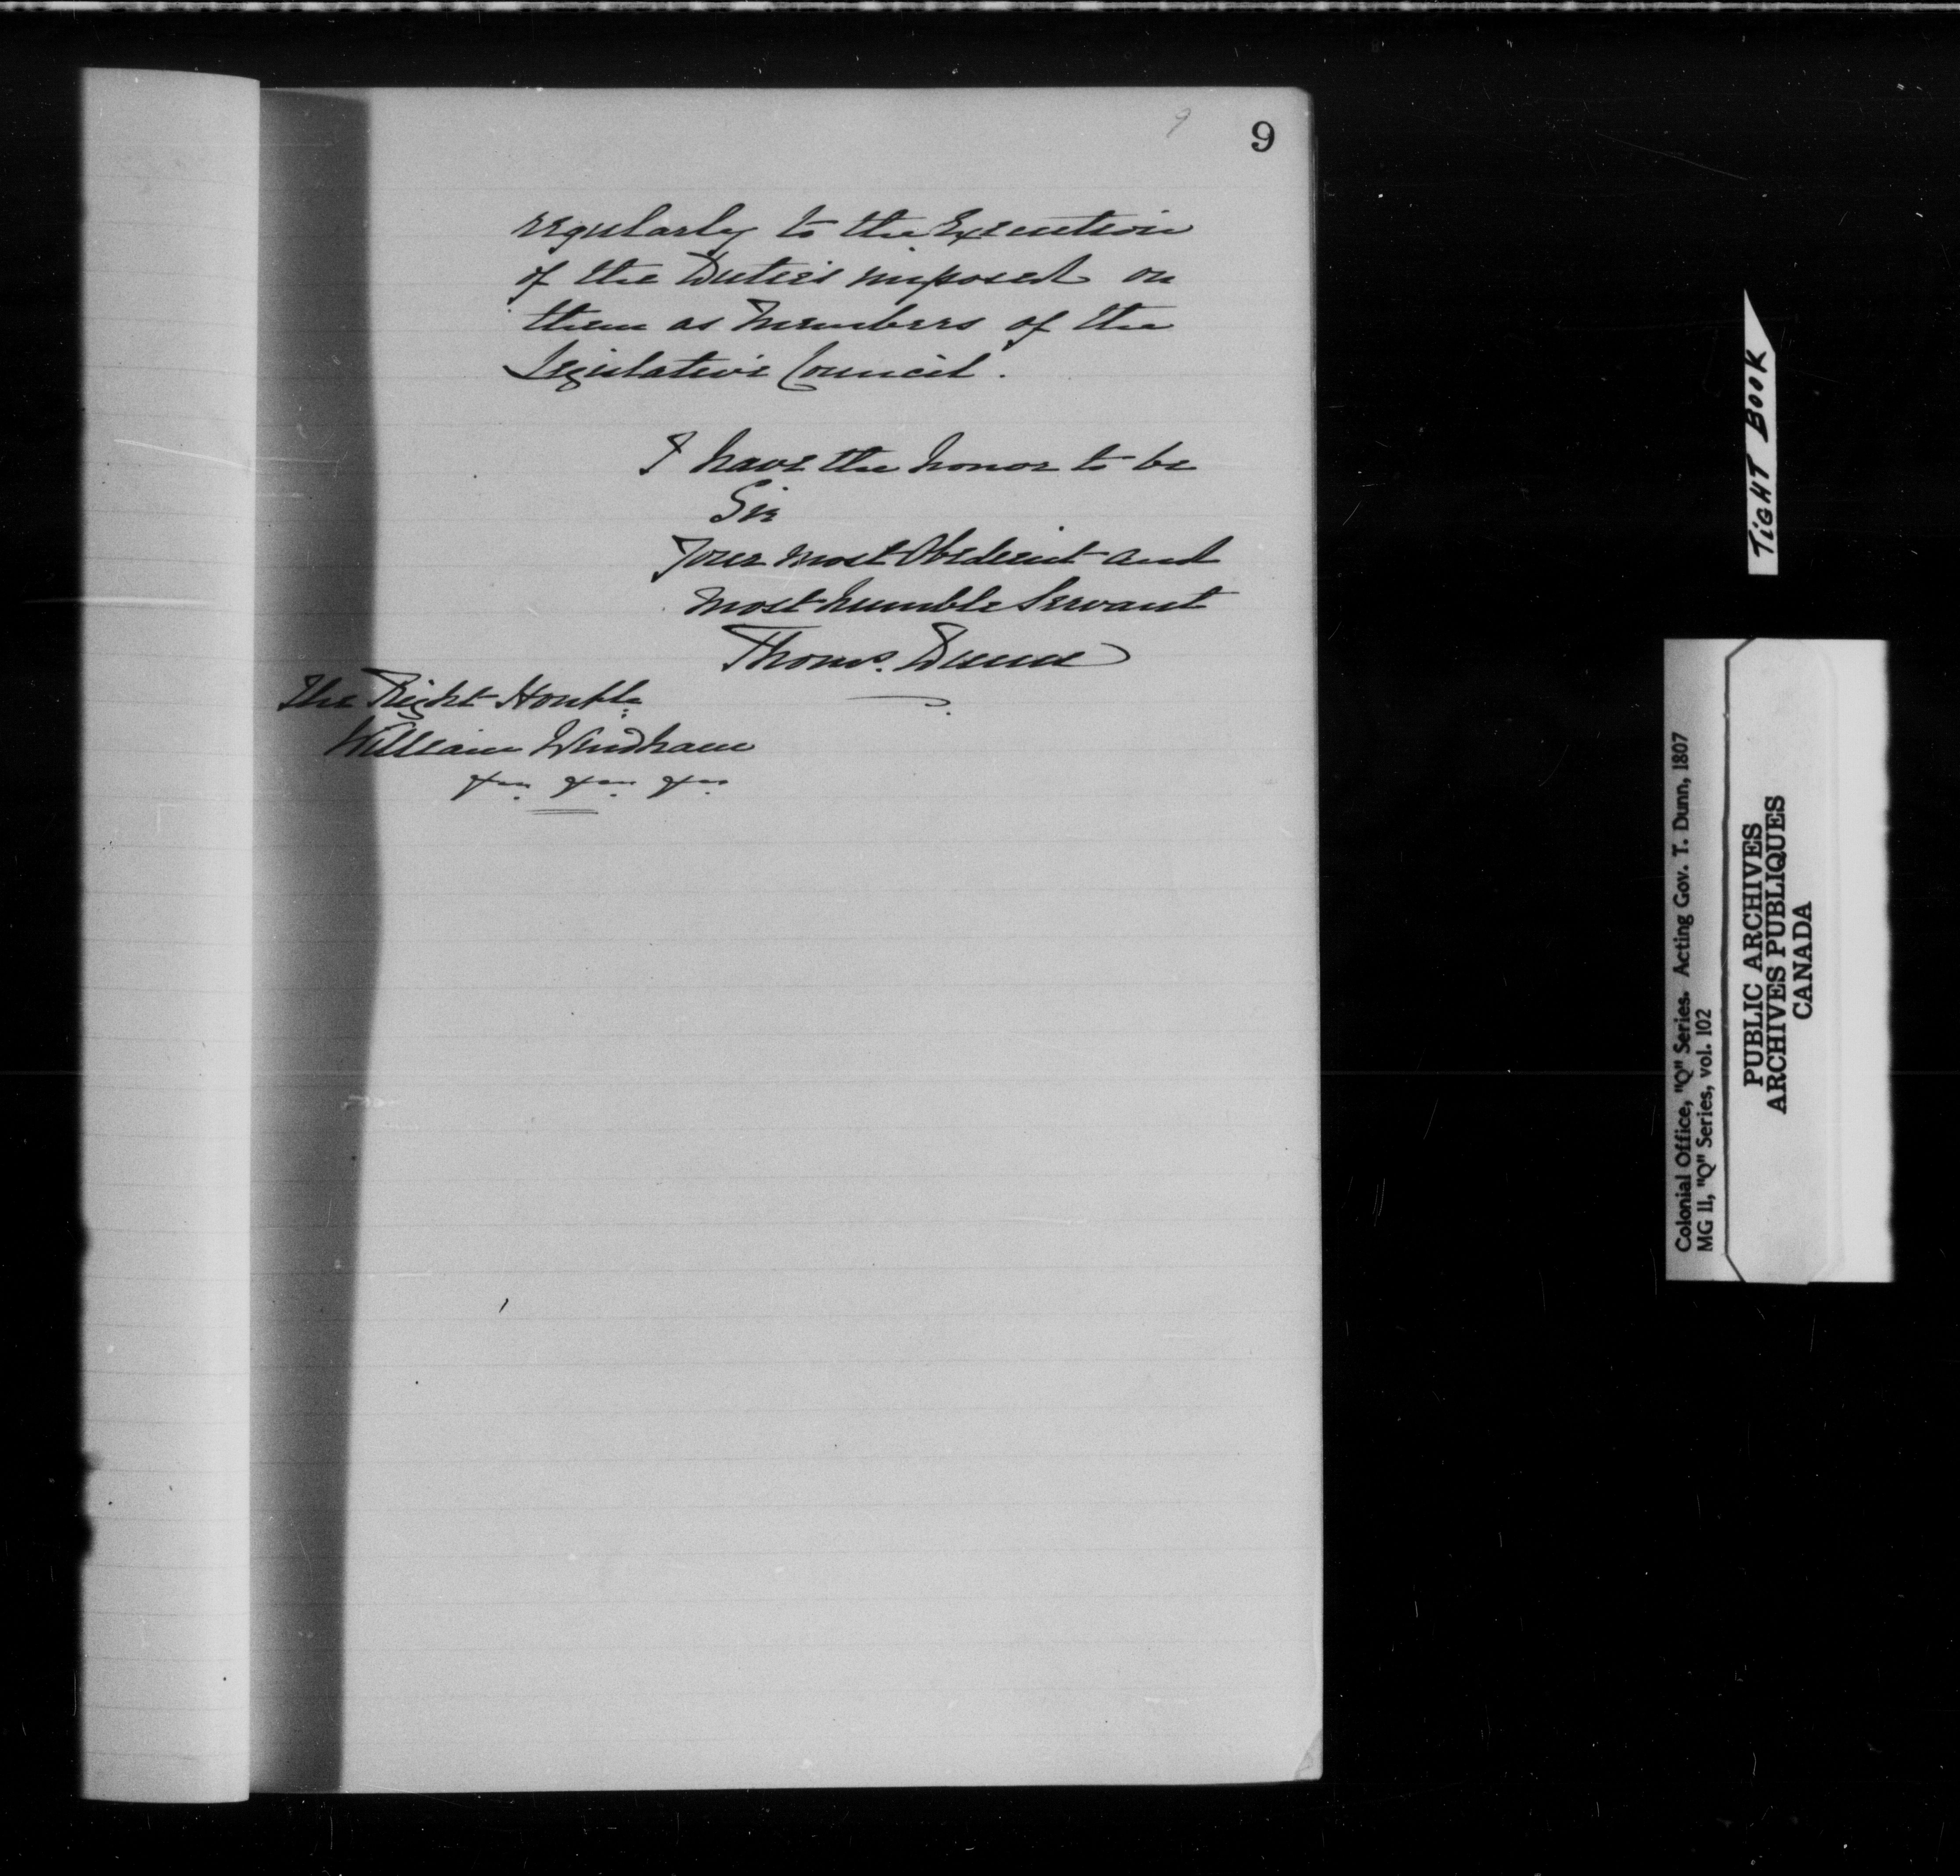 9
9
regularly to the Execution
of the Duties imposed on
them as Members of the
Legislative Council.
I have the honor to be
Sir
Your most Obedient and
most humble Servant
Thoms. Dunn
The Right Honble
William Windham
&c. &c. &c.
TiGHT BOOK
Colonial Office, "Q" Series. Acting Gov. T. Dunn, 1807
MG 11, "Q" Series, vol. 102
PUBLIC ARCHIVES
ARCHIVES PUBLIQUES
CANADA